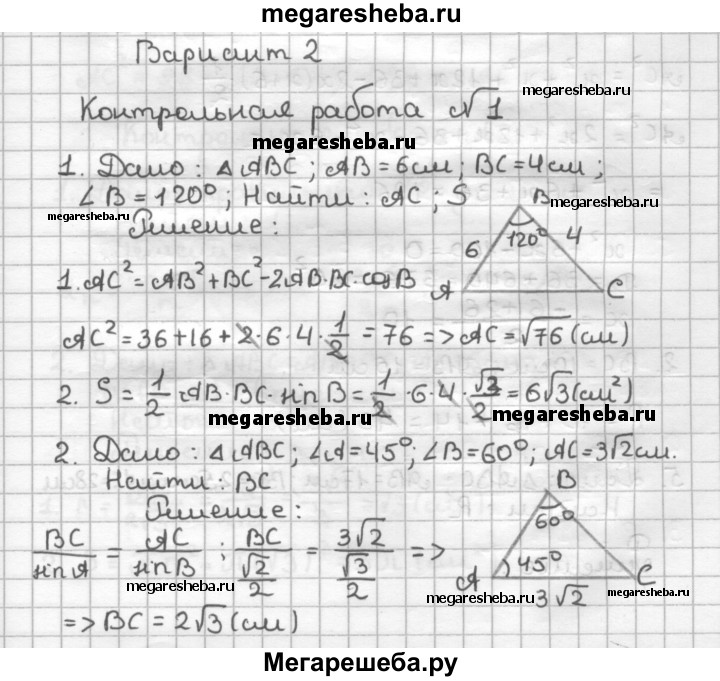 megaresheba.ru
Вариант 2
megaresheba.ru
Контрольная работа №1
megaresheba.ru
1. Дано: △ABC; AB=6см; BC=4см;
∠B=120°; Найти: AC; S
megaresheba.ru
megaresheba.ru
Решение:
B
120°
6
4
A
C
1. AC²=AB²+BC²-2AB·BC·cosB
AC²=36+16+2·6·4·1/2=76=>AC=√76(см)
2. S=1/2 AB·BC·sinB=1/2·6·4·√3/2=6√3(см²)
megaresheba.ru
megaresheba.ru
2. Дано: △ABC; ∠A=45°; ∠B=60°; AC=3√2см.
Найти: BC
Решение:
B
60°
45°
A
C
3√2
BC/sinA = AC/sinB; BC/(√2/2) = 3√2/(√3/2) =>
megaresheba.ru
megaresheba.ru
=> BC=2√3(см)
Мегарешеба.ру